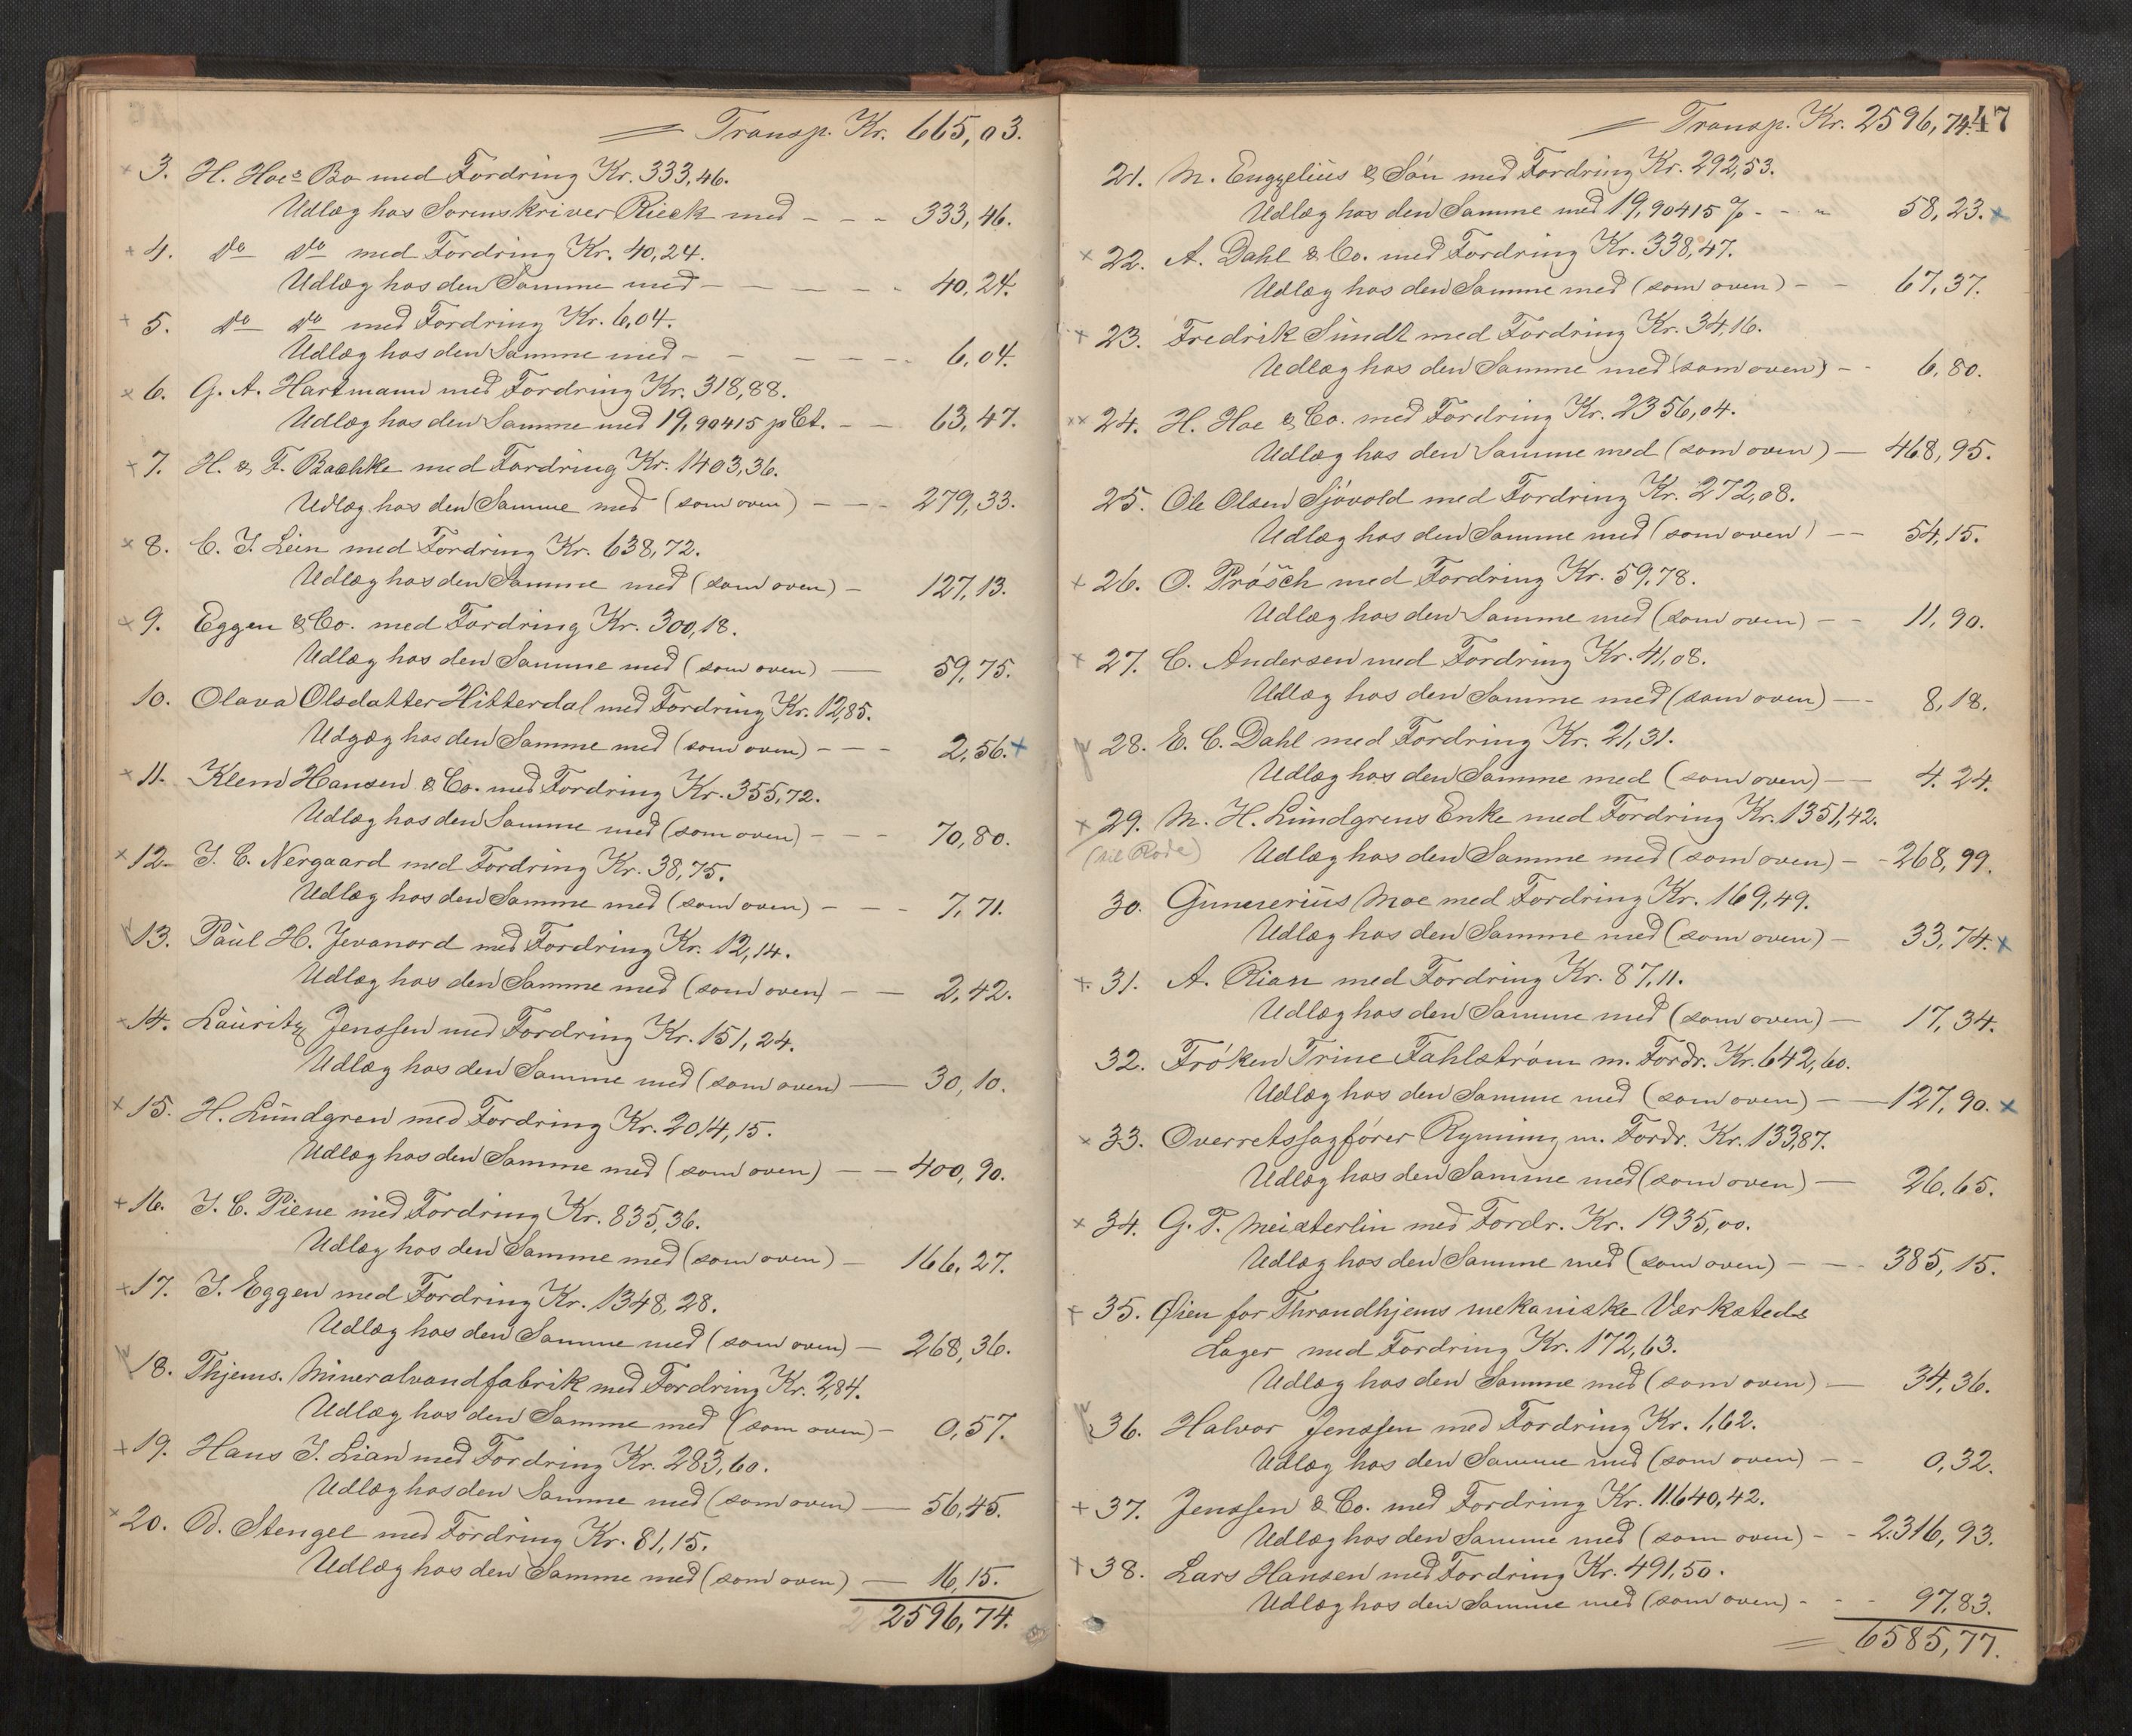 Transp. Kr. 665,03.
3. H. Hoes Bo med Fordring Kr. 333,46.
Udlæg hos Sorenskriver Rieck med - - - 333,46.
4. do do med Fordring Kr. 40,24.
Udlæg hos den Samme med - - - - - 40,24.
5. do do med Fordring Kr. 6,04.
Udlæg hos den Samme med - - - - - 6,04.
6. G. A. Hartmann med Fordring Kr. 318,88.
Udlæg hos den Samme med 19,90415 pCt. - - 63,47.
7. H. & F. Bachke med Fordring Kr. 1403,36.
Udlæg hos den Samme med (som oven) - - - 279,33.
8. C. J. Lein med Fordring Kr. 638,72.
Udlæg hos den Samme med (som oven) - 127,13.
9. Eggen & Co. med Fordring Kr. 300,18.
Udlæg hos den Samme med (som oven) - 59,75.
10. Olava Olsdatter Hitterdal med Fordring Kr. 12,85.
Udgæg hos den Samme med (som oven) - - - 2,56.
11. Klem Hansen & Co. med Fordring Kr. 355,72.
Udlæg hos den Samme med (som oven) - - - 70,80.
12. J. C. Nergaard med Fordring Kr. 38,75.
Udlæg hos den Samme med (som oven) - - - 7,71.
13. Paul H. Jevanord med Fordring Kr. 12,14.
Udlæg hos den Samme med (som oven) - - 2,42.
14. Lauritz Jenssen med Fordring Kr. 151,24.
Udlæg hos den Samme med (som oven) - 30,10.
15. H. Lundgren med Fordring Kr. 2014,15.
Udlæg hos den Samme med (som oven) - - 400,90.
16. J. C. Piene med Fordring Kr. 835,36.
Udlæg hos den Samme med (som oven) - 166,27.
17. J. Eggen med Fordring Kr. 1348,28.
Udlæg hos den Samme med (som oven) - 268,36.
18. Thjems. Mineralvandfabrik med Fordring Kr. 2,84.
Udlæg hos den Samme med (som oven) - 0,57.
19. Hans J. Lian med Fordring Kr. 283,60.
Udlæg hos den Samme med (som oven) - 56,45.
20. Stengel med Fordring Kr. 81,15.
Udlæg hos den Samme med (som oven) - 16,15.
2596,74.
Transp. Kr. 2596,74.
47
21. M. Enggelius & Søn med Fordring Kr. 292,53.
Udlæg hos den Samme med 19,90415 % - - - 58,23.
22. A. Dahl & Co. med Fordring Kr. 338,47.
Udlæg hos den Samme med (som oven) - - 67,37.
23. Fredrik Sundt med Fordring Kr. 34,16.
Udlæg hos den Samme med (som oven) - - 6,80.
24. H. Hoe & Co. med Fordring Kr. 2356,04.
Udlæg hos den Samme med (som oven) - 468,95.
25. Ole Olsen Sjøvold med Fordring Kr. 272,08.
Udlæg hos den Samme med (som oven) - - 54,15.
26. O. Prøsch med Fordring Kr. 59,78.
Udlæg hos den Samme med (som oven) - - 11,90.
27. C. Andersen med Fordring Kr. 41,08.
Udlæg hos den Samme med (som oven) - - 8,18.
28. E. C. Dahl med Fordring Kr. 21,31.
Udlæg hos den Samme med (som oven) - - 4,24.
29. M. H. Lundgrens Enke med Fordring Kr. 1351,42.
(til Rode) Udlæg hos den Samme med (som oven) - - 268,99.
30. Gunnerius Moe med Fordring Kr. 169,49.
Udlæg hos den Samme med (som oven) - 33,74.
31. A. Rian med Fordring Kr. 87,11.
Udlæg hos den Samme med (som oven) - 17,34.
32. Frøken Trine Fahlstrøm m. Fordr. Kr. 642,60.
Udlæg hos den Samme med (som oven) - - 127,90.
33. Overretssagfører Rynning m. Fordr. Kr. 133,87.
Udlæg hos den Samme med (som oven) - 26,65.
34. G. P. Meisterlin med Fordr. Kr. 1935,00.
Udlæg hos den Samme med (som oven) - - - 385,15.
35. Øien for Throndhjems mekaniske Værksteds
Lager med Fordring Kr. 172,63.
Udlæg hos den Samme med (som oven) - 34,36.
36. Halvor Jenssen med Fordring Kr. 1,62.
Udlæg hos den Samme med (som oven) - - 0,32.
37. Jenssen & Co. med Fordring Kr. 11640,42.
Udlæg hos den Samme med (som oven) - - 2.316,93.
38. Lars Hansen med Fordring Kr. 491,50.
Udlæg hos den Samme med (som oven) - - - 97,83.
6585,77.